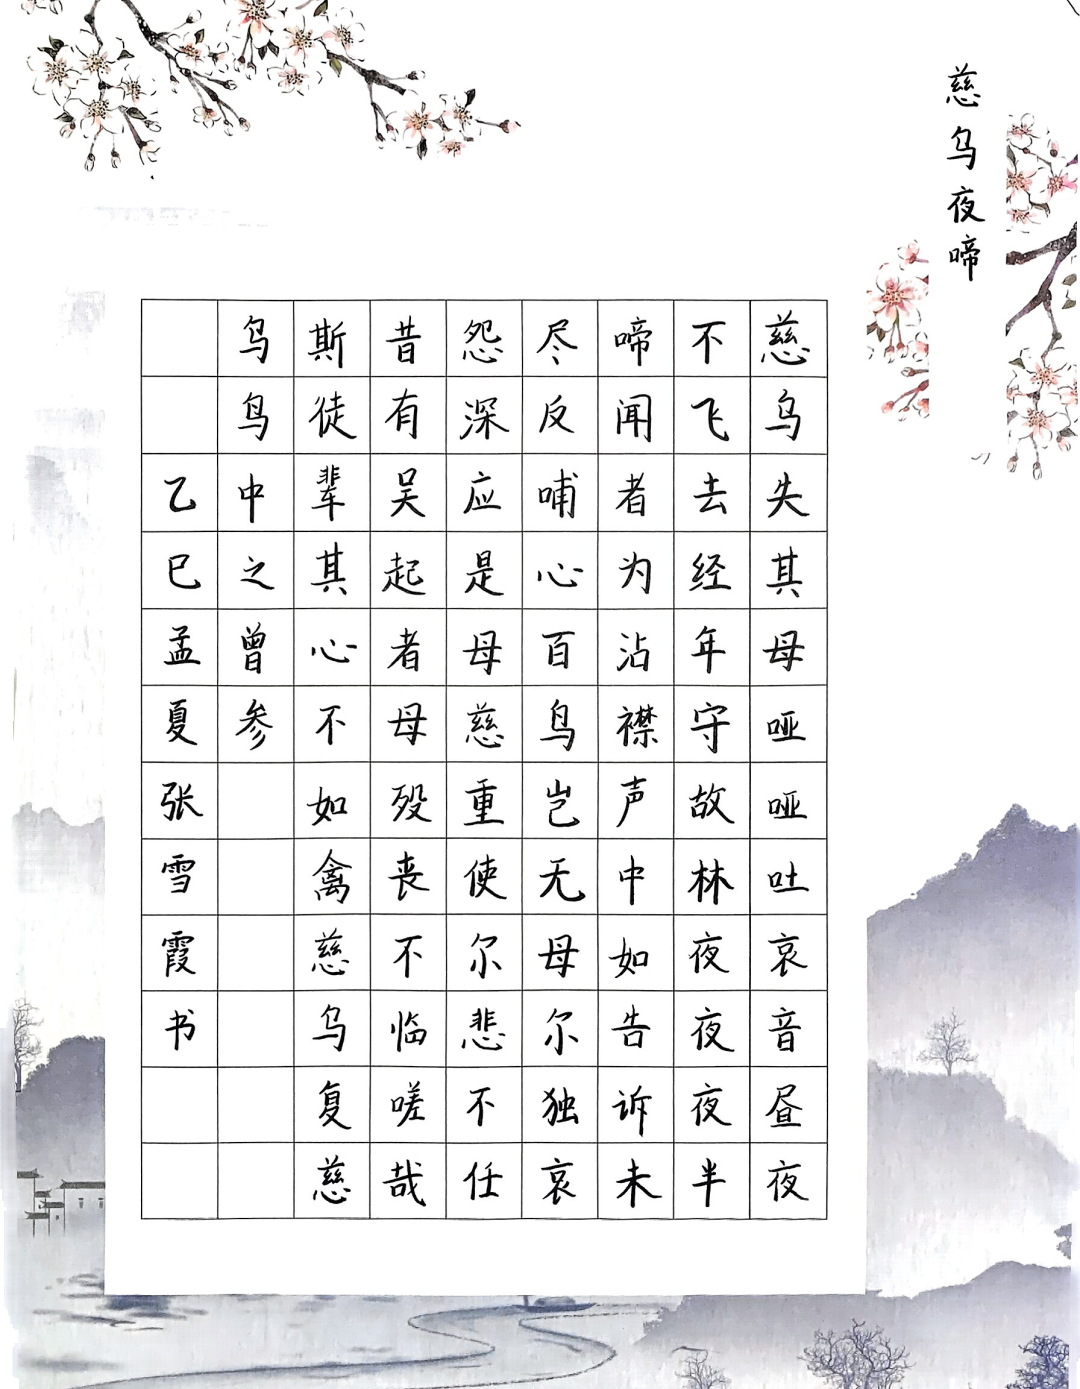 慈乌夜啼
慈乌失其母哑哑吐哀音昼夜
不飞去经年守故林夜夜夜半
啼闻者为沾襟声中如告诉未
尽反哺心百鸟岂无母尔独哀
怨深应是母慈重使尔悲不任
昔有吴起者母殁丧不临嗟哉
斯徒辈其心不如禽慈乌复慈
乌鸟中之曾参
乙巳孟夏张雪霞书